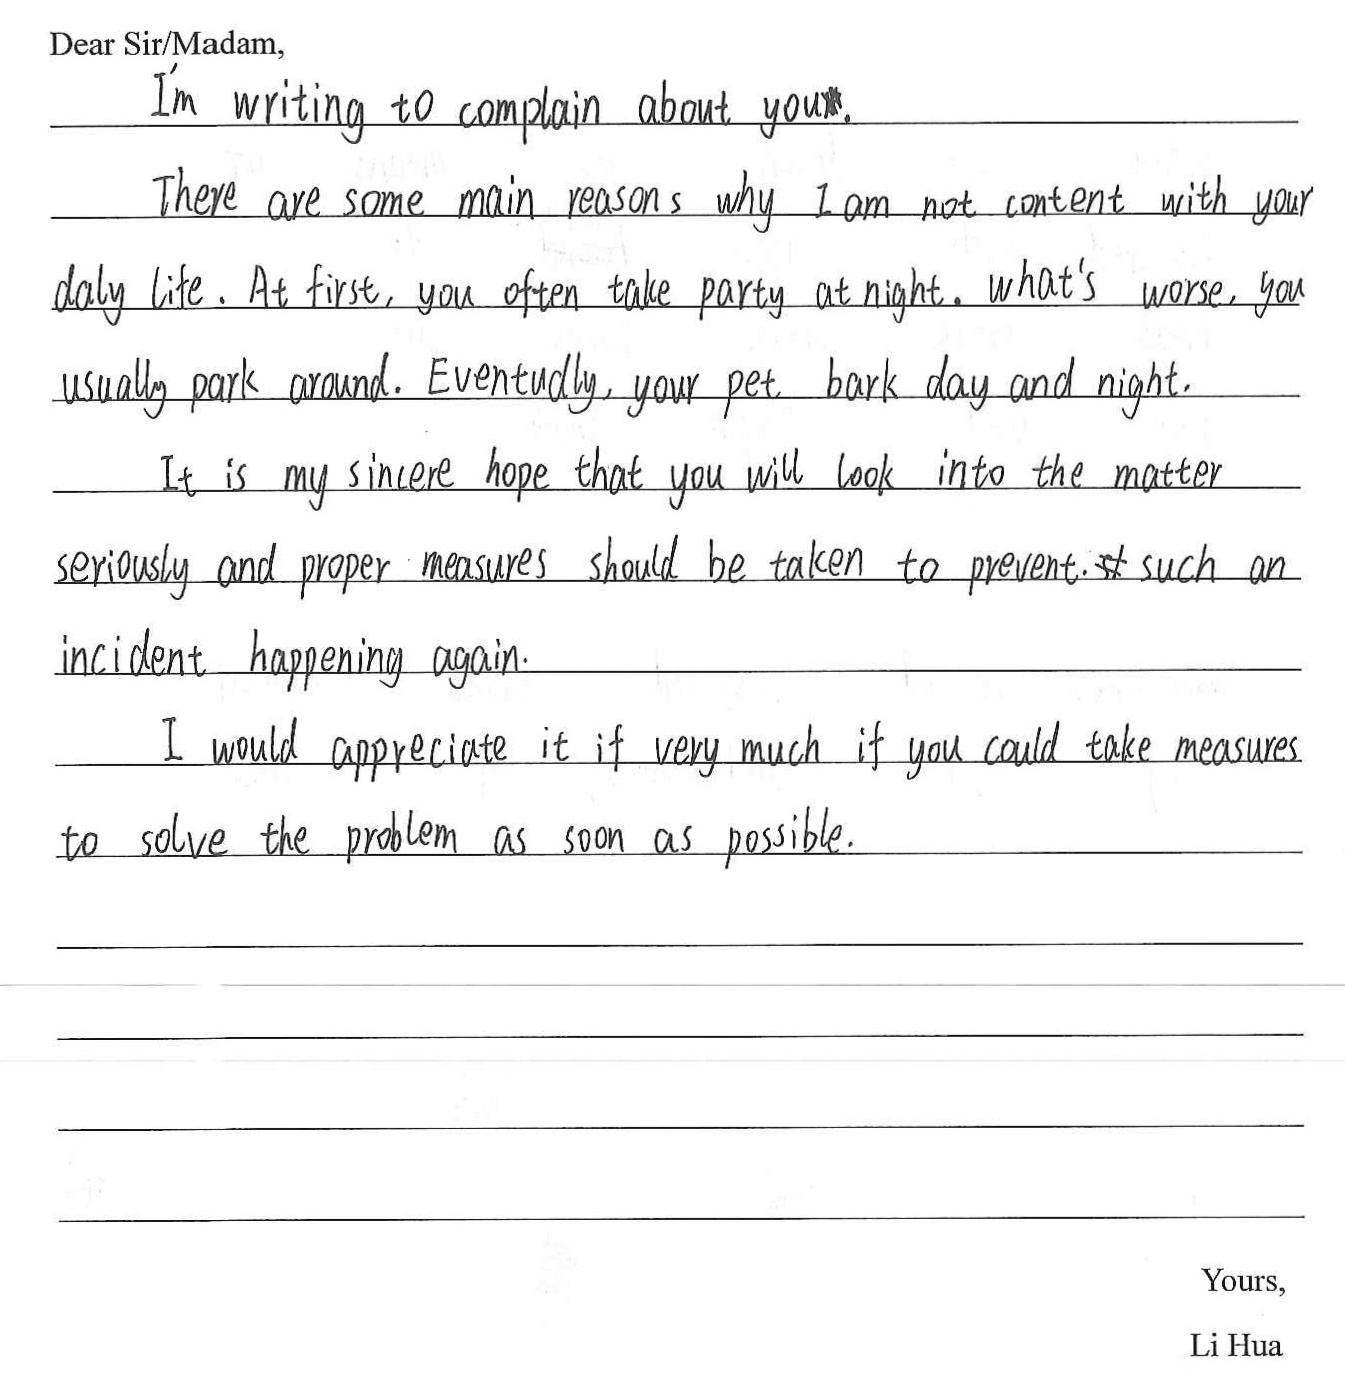 Dear Sir/Madam,
I'm writing to complain about you.
There are some main reasons why I am not content with your
daly life. At first, you often take party at night. What's worse, you
usually park around. Eventudly, your pet bark day and night.
It is my sincere hope that you will look into the matter
seriously and proper measures should be taken to prevent. such an
incident happening again.
I would appreciate it if very much if you could take measures
to solve the problem as soon as possible.
Yours,
Li Hua